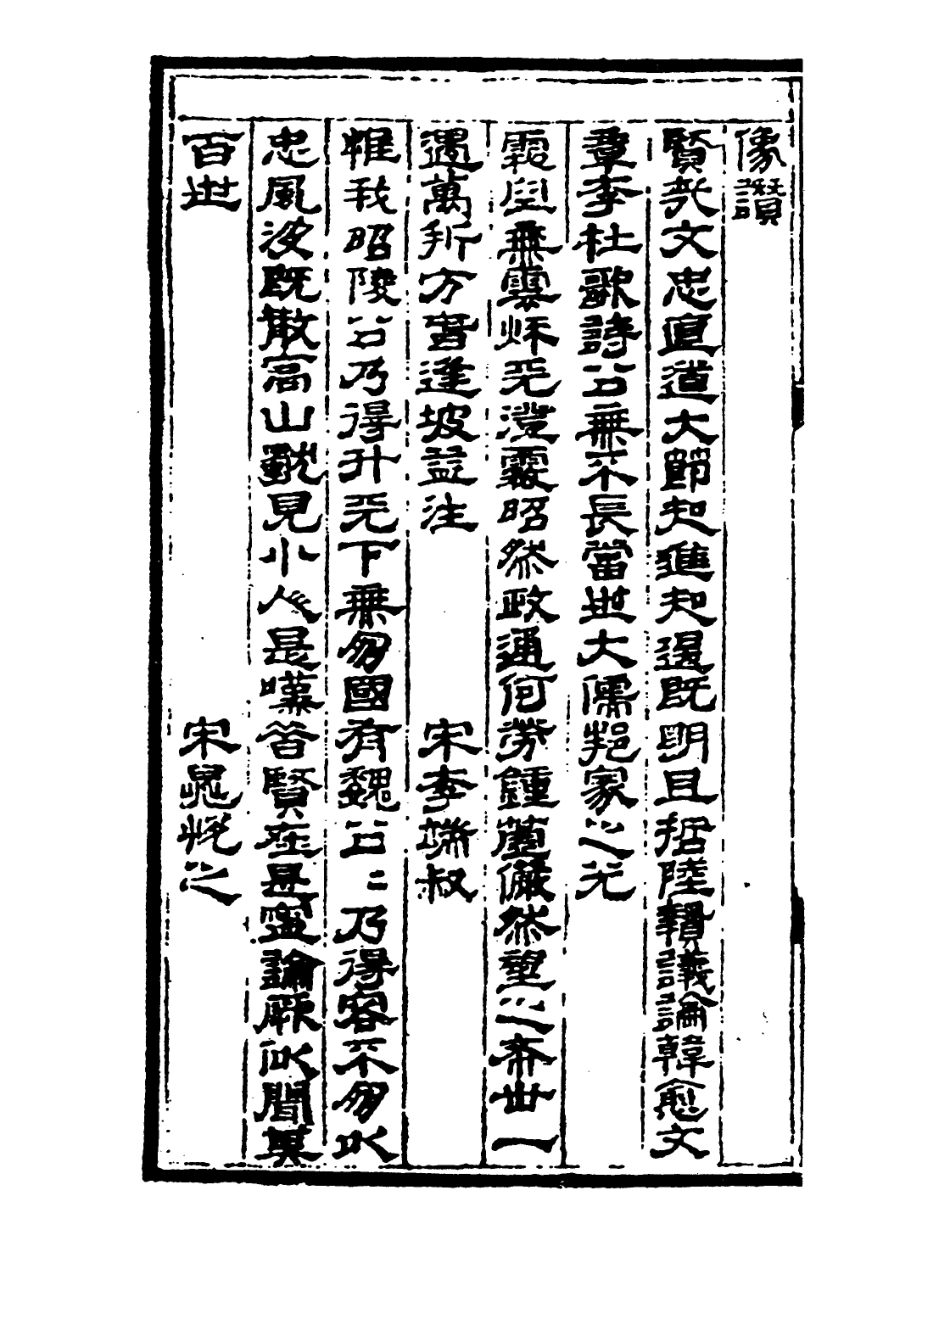 像讚
賢哉文忠直道大節知進知退既明且哲陸贄議論韓愈文
章李杜歌詩公無不長當世大儒邦家之光
霜空無雲秋天澄霽昭然政通何勞鍾儼然望之希世一
遇萬折方逢坡益注 宋李端叔
惟我昭陵公乃得升天下無朋國有魏公〻乃得容不朋以
忠風波既散高山見小人是嘆賢在是寧論厥似聞其
百世 宋晁悅之